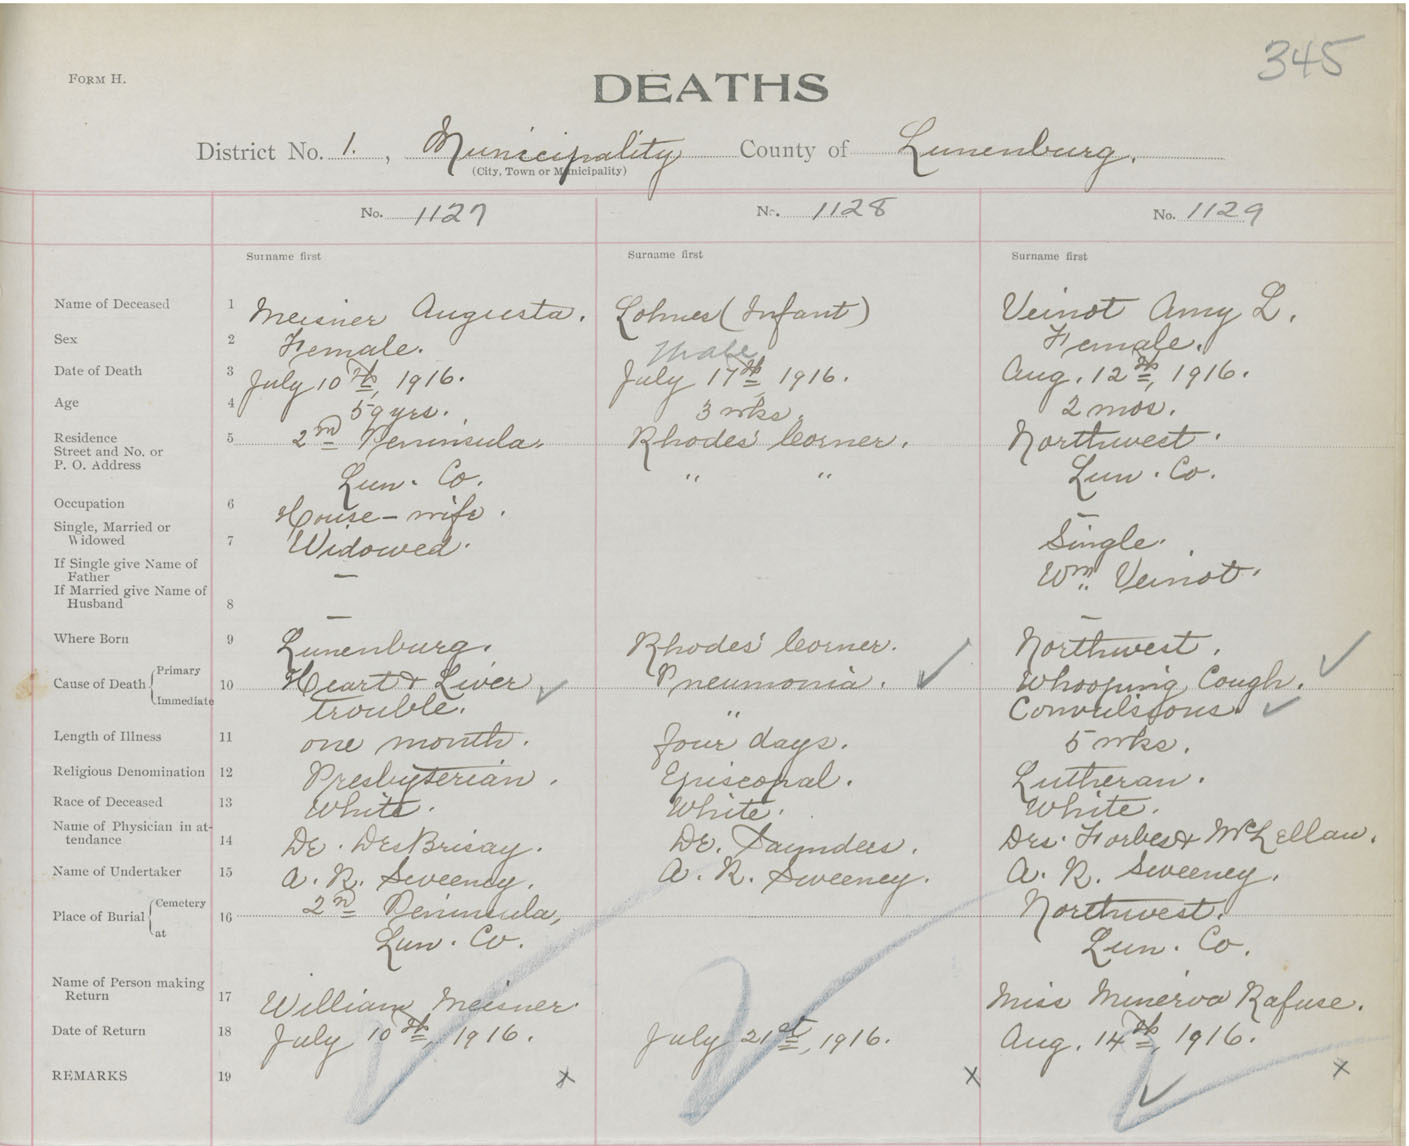 345
FORM H.
DEATHS
District No. 1. , Municipality County of Lunenburg.
(City, Town or Municipality)
No. 1127 No. 1128 No. 1129
Surname first Surname first Surname first
Name of Deceased 1 Meisner Augusta. Lohnes (Infant) Veinot Amy L.
Sex 2 Female. Male Female.
Date of Death 3 July 10th, 1916. July 17th, 1916. Aug. 12th, 1916.
Age 4 59 yrs. 3 wks. 2 mos.
Residence 5 2nd Peninsula, Rhodes' Corner. Northwest.
Street and No. or
P. O. Address Lun. Co. " " Lun. Co.
Occupation 6 House-wife. –
Single, Married or
Widowed 7 Widowed. Single.
If Single give Name of
Father – Wm. Veinot.
If Married give Name of
Husband 8 – –
Where Born 9 Lunenburg. Rhodes' Corner. Northwest.
Cause of Death Primary 10 Heart & Liver Pneumonia. Whooping Cough.
Immediate trouble. " Convulsions.
Length of Illness 11 one month. four days. 5 wks.
Religious Denomination 12 Presbyterian. Episcopal. Lutheran.
Race of Deceased 13 White. White. White.
Name of Physician in at-
tendance 14 Dr. DesBrisay. Dr. Saunders. Drs. Forbes & McLellan.
Name of Undertaker 15 A. R. Sweeney. A. R. Sweeney. A. R. Sweeney.
Place of Burial Cemetery 16 2nd Peninsula, Northwest.
at Lun. Co. Lun. Co.
Name of Person making
Return 17 William Meisner. Miss Minerva Rafuse.
Date of Return 18 July 10th, 1916. July 21st, 1916. Aug. 14th, 1916.
REMARKS 19 x x x